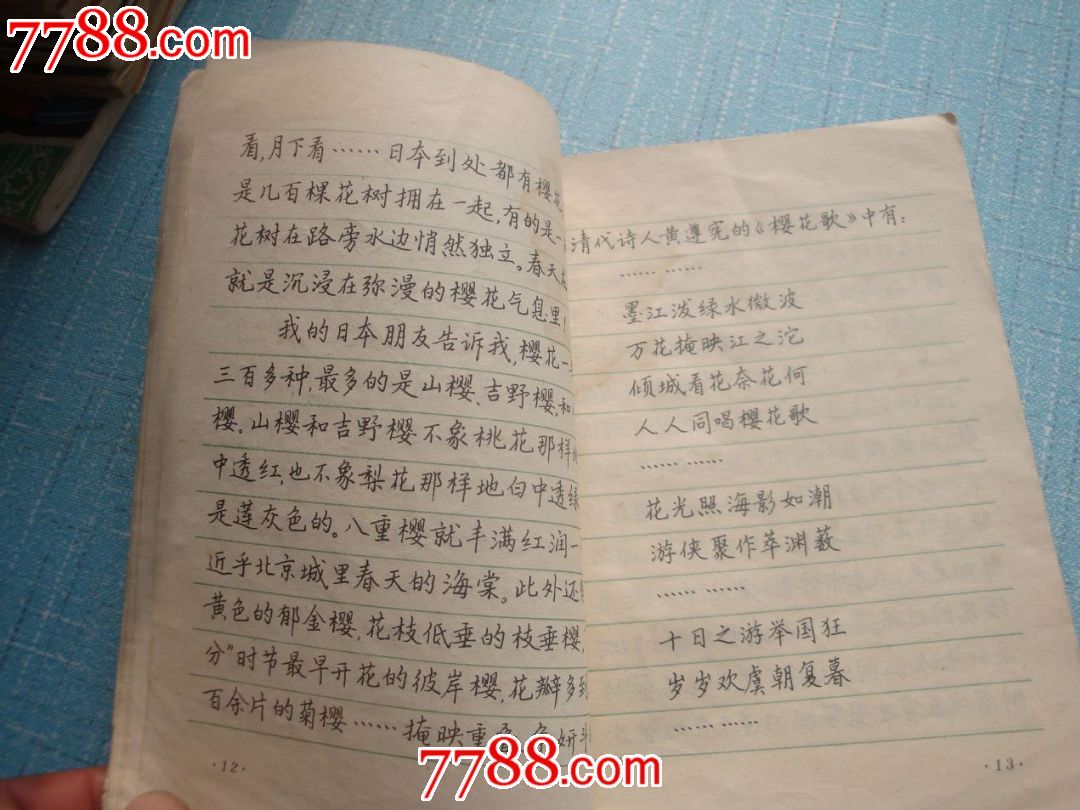 7788.com
7788.com
看,月下看……日本到处都有樱花
是几百棵花树拥在一起,有的是一
花树在路旁水边悄然独立。春天
就是沉浸在弥漫的樱花气息里!
我的日本朋友告诉我,樱花一
三百多种,最多的是山樱、吉野樱,和
樱。山樱和吉野樱不象桃花那样
中透红,也不象梨花那样地白中透绿
是莲灰色的。八重樱就丰满红润一
近乎北京城里春天的海棠。此外还
黄色的郁金樱,花枝低垂的枝垂樱,
分”时节最早开花的彼岸樱,花瓣多到
百余片的菊樱……掩映重叠、争妍斗
·12·
清代诗人黄遵宪的《樱花歌》中有:
…… ……
墨江泼绿水微波
万花掩映江之沱
倾城看花奈花何
人人同唱樱花歌
…… ……
花光照海影如潮
游侠聚作萃渊薮
…… ……
十日之游举国狂
岁岁欢虞朝复暮
…… ……
·13·
7788.com